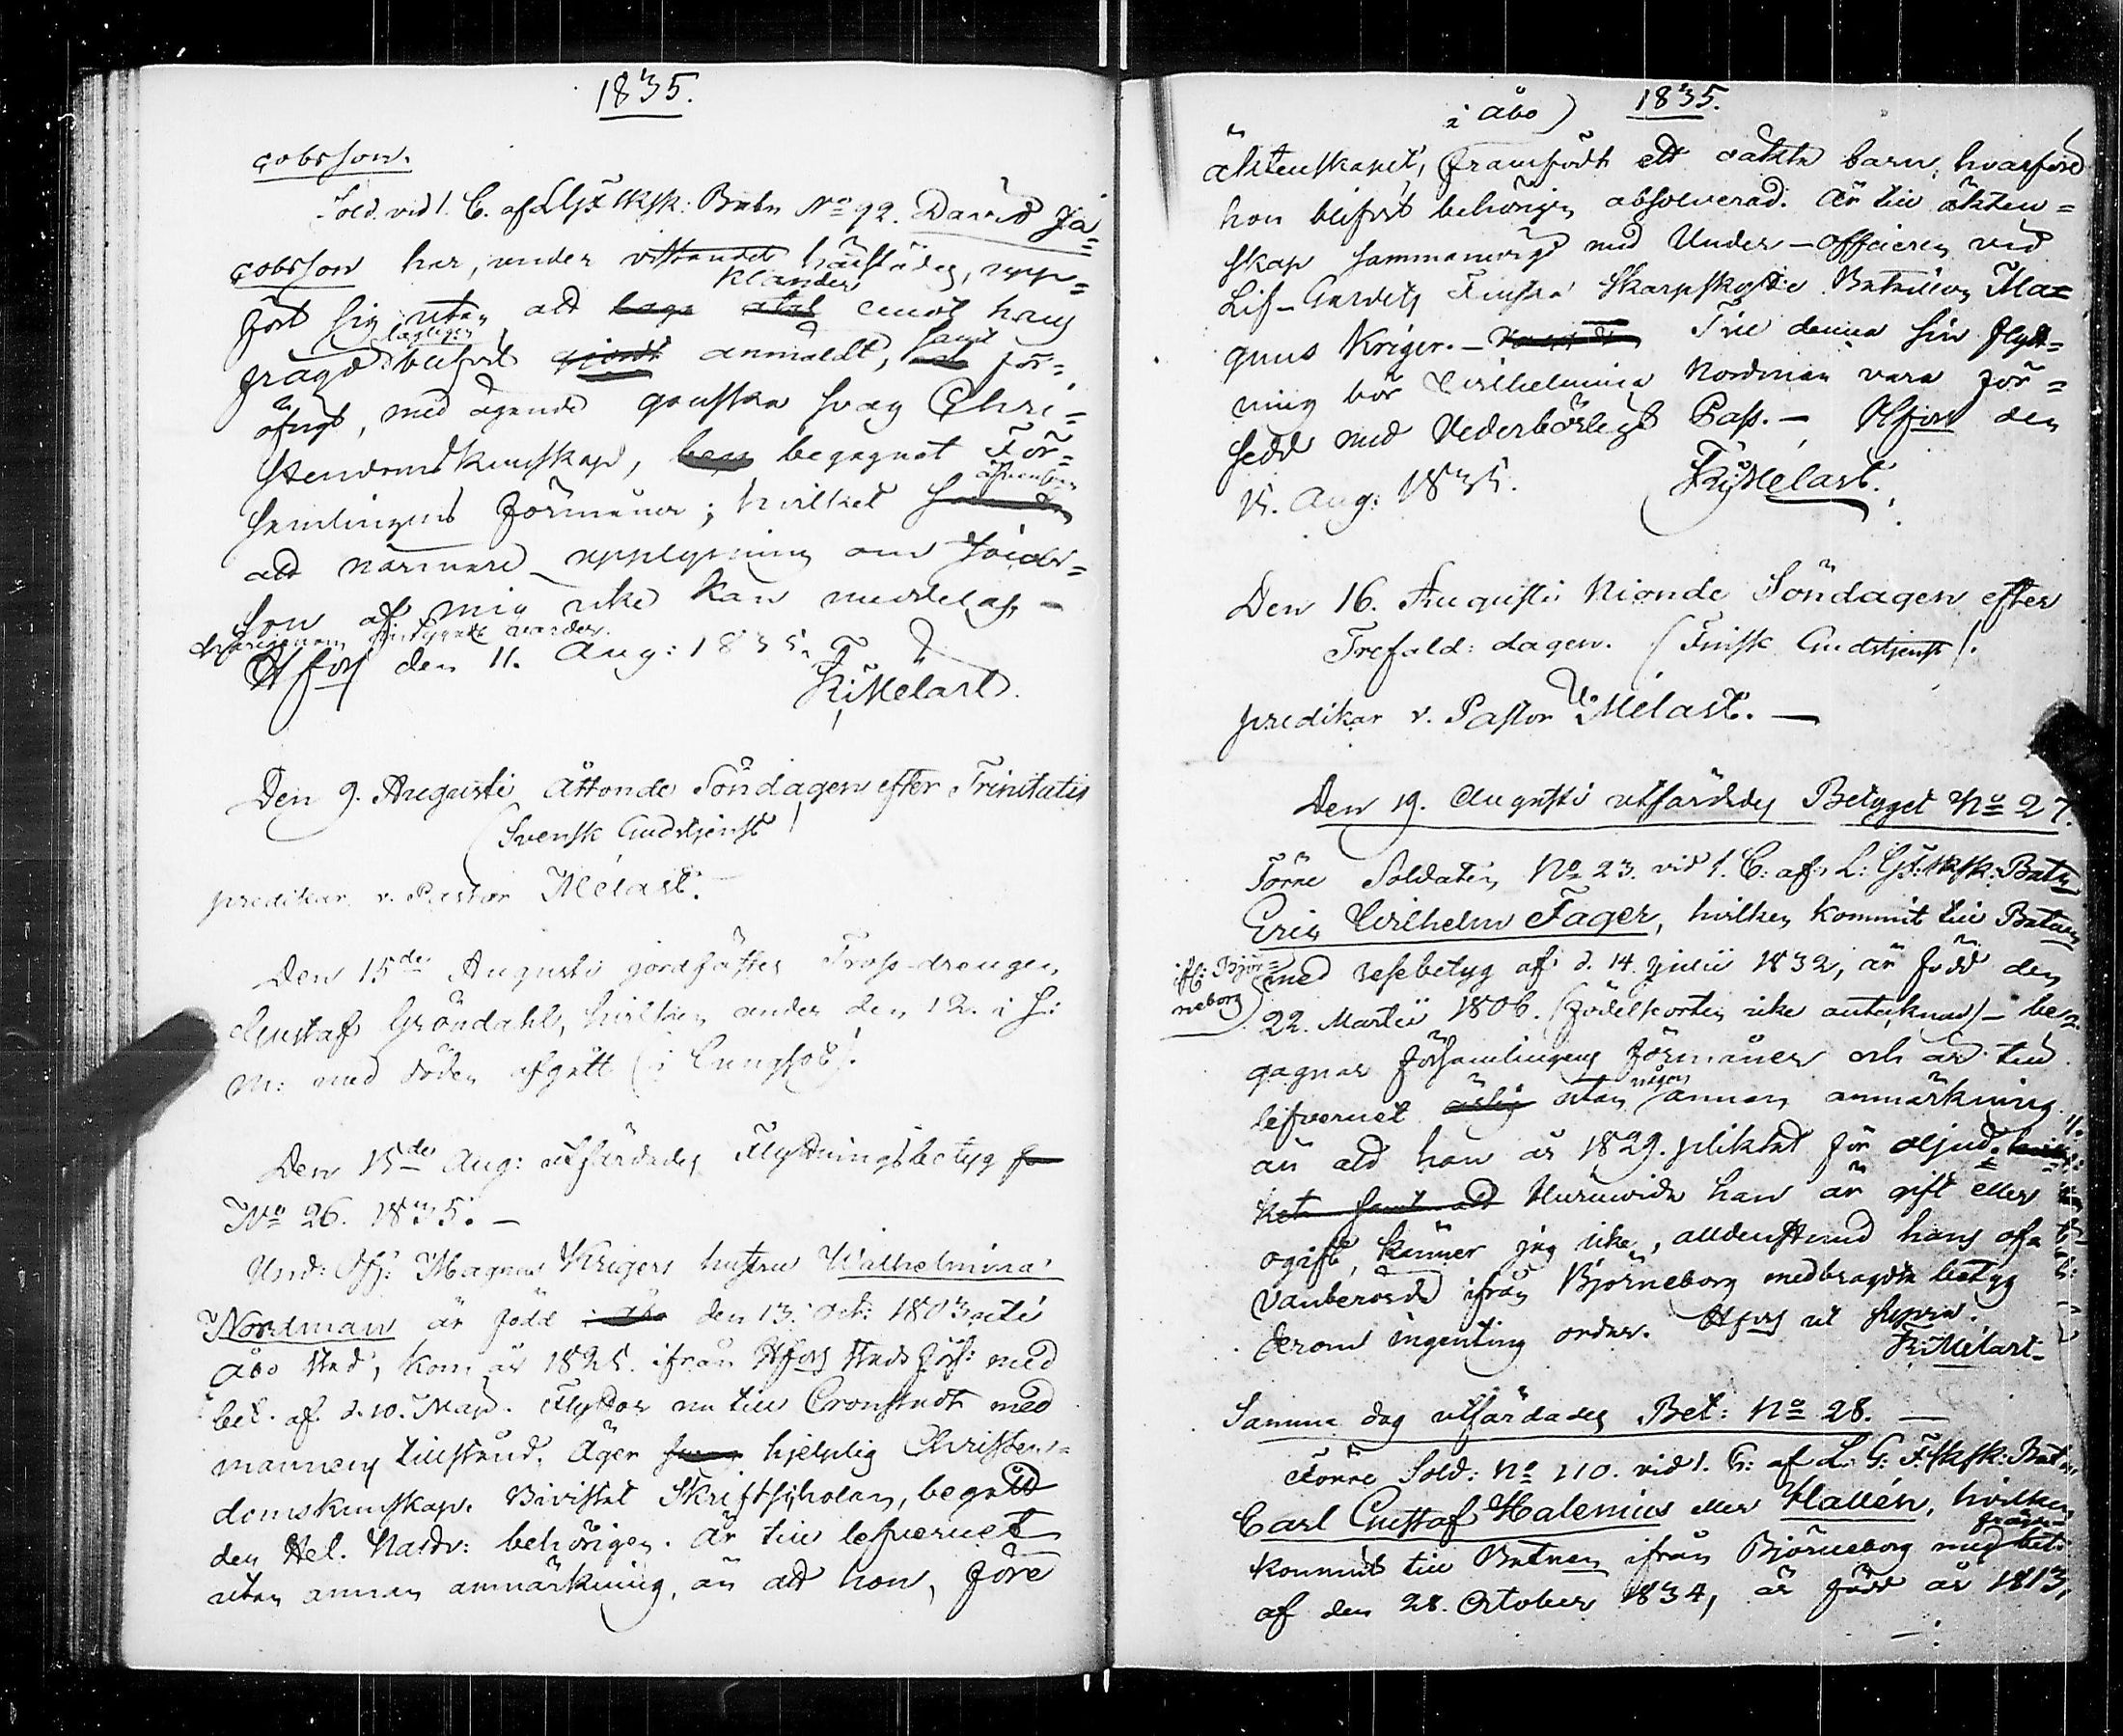 1835.
cobsson.
Sold. vid 1. C. af L.G.F. Sksk: Batn No 92. David Ja=
cobsson har, under vistandet härstädes, upp=
Klander
fört sig utan att emot hans
lagligen samt
frägd blifvit gjordt anmäldt, för=
öfrigt, med ägande ganska svag Chri=
stendomskunskap, begagnat För=
äfvensom
samlingens förmåner; hvilket
att närmare upplysning om Jacobs=
son af mig icke kan meddelas,
härigenom vardes.
Hfors den 11. Aug: 1835.
F. Melart.
Den 9. Augusti Åttonde Söndagen efter Trinitatis
(Svensk Gudstjenst)
predikar v. Pastor Melart.
Den 15de Augusti jordfästes Tross-drengen
Gustaf Gröndahl, hvilken under den 12. i s:
m: med döden afgått (i Lungsot).
Den 15de Aug: utfärdades Flyttningsbetyg
No 26. 1835. —
Und: Off: Magnus Krigers hustru Wilhelmina
Nordman är född i Åbo den 13. Oct: 1803 uti
Åbo Stad, kom år 1825. ifrån Hfors Stads förs: med
bet. af d. 10. Maji. Flyttar nu till Cronstadt med
mannens tillstånd. Äger hjelplig Christen=
domskunskap. Bivistat Skriftskolan, begått
den Hel. Nattv: behörigen. Är till lefvernet
utan annan anmärkning, än att hon, före
1835.
i Åbo)
äktenskapet, framfödt ett oäkta barn, hvarföre
hon blifvit behörigen absolverad. Är till äkten=
skap sammanvigd med Under-officeren vid
Lif-Gardets Finska Skarpskytte Bataillon Ma=
gnus Kriger. — Till denna sin flytt=
ning bör Wilhelmina Nordman vara för=
sedd med Vederbörligt Pass. — Hfors den
15. Aug: 1835. F. Melart.
Den 16. Augusti Nionde Söndagen efter
Trefald: dagen. (Finsk Gudstjenst).
predikar v. Pastor Melart. —
Den 19. Augusti utfärdades Betyget No 27.
Förre Soldaten No 23. vid 1. C: af L: G: F: Sksk: Batn
Eric Wilhelm Fager, hvilken kommit till Batn
if: Björ=
neborg
med resebetyg af d. 14. Julii 1832, är född den
22. Martii 1806. (födelseorten icke antecknad) — be=
gagnar församlingens förmåner och är till
någon
lefvernet ärlig utan annan anmärkning
än att han år 1829. pliktat för oljud.
ket samt att Huruvida han är gift eller
ogift, känner jag icke, alldenstund hans of=
vanberörde ifrån Björneborg medbragta betyg
derom ingenting ordar. Hfors ut supra.
F. Melart.
Samma dag utfärdades Bet: No 28. —
Förre Sold: No 110. vid 1. C: af L. G: F. Sksk: Batn
Carl Gustaf Halenius eller Hallén, hvilken
kommit till Batnen ifrån Björneborg med bet:
af den 28. October 1834, är född år 1813,